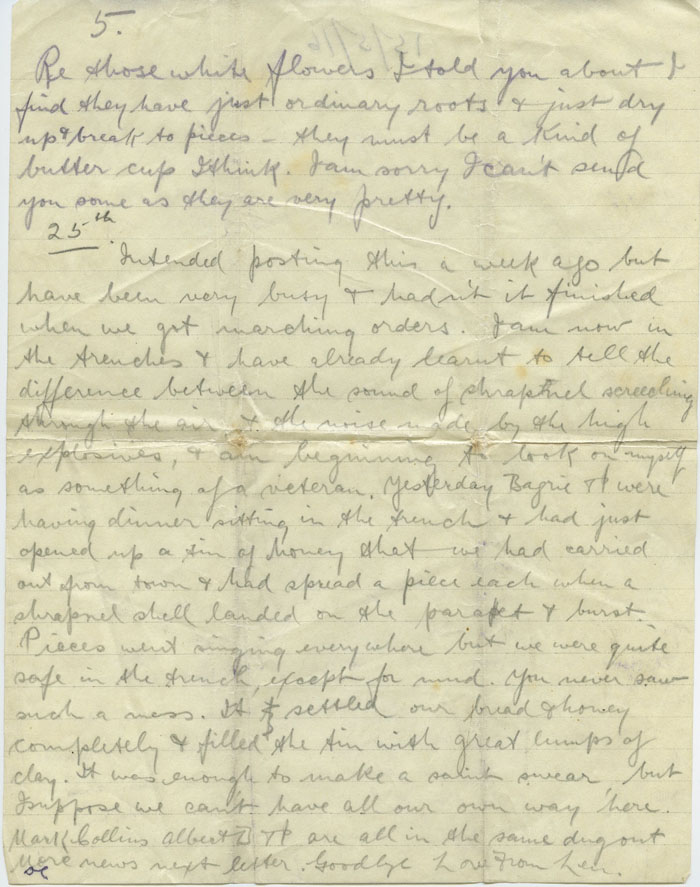 5.
Re those white flowers I told you about I
find they have just ordinary roots & just dry
up & break to pieces – they must be a kind of
butter cup I think. I am sorry I can't send
you some as they are very pretty.
25th.
Intended posting this a week ago but
have been very busy & hadn't it finished
when we got marching orders. I am now in
the trenches & have already learnt to tell the
difference between the sound of shrapnel screeching
through the air & the noise made by the high
explosives, & am beginning to look on myself
as something of a veteran. Yesterday Bagrie & I were
having dinner sitting in the trench & had just
opened up a tin of honey that we had carried
out from town & had spread a piece each when a
shrapnel shell landed on the parapet & burst.
Pieces went singing everywhere but we were quite
safe in the trench, except for mud. You never saw
such a mess. It settled our bread & honey
completely & filled the tin with great lumps of
clay. It was enough to make a saint swear but
I suppose we can't have all our own way here.
Mark Collins Albert B & I are all in the same dug out
More news next letter. Goodbye Love from Len.